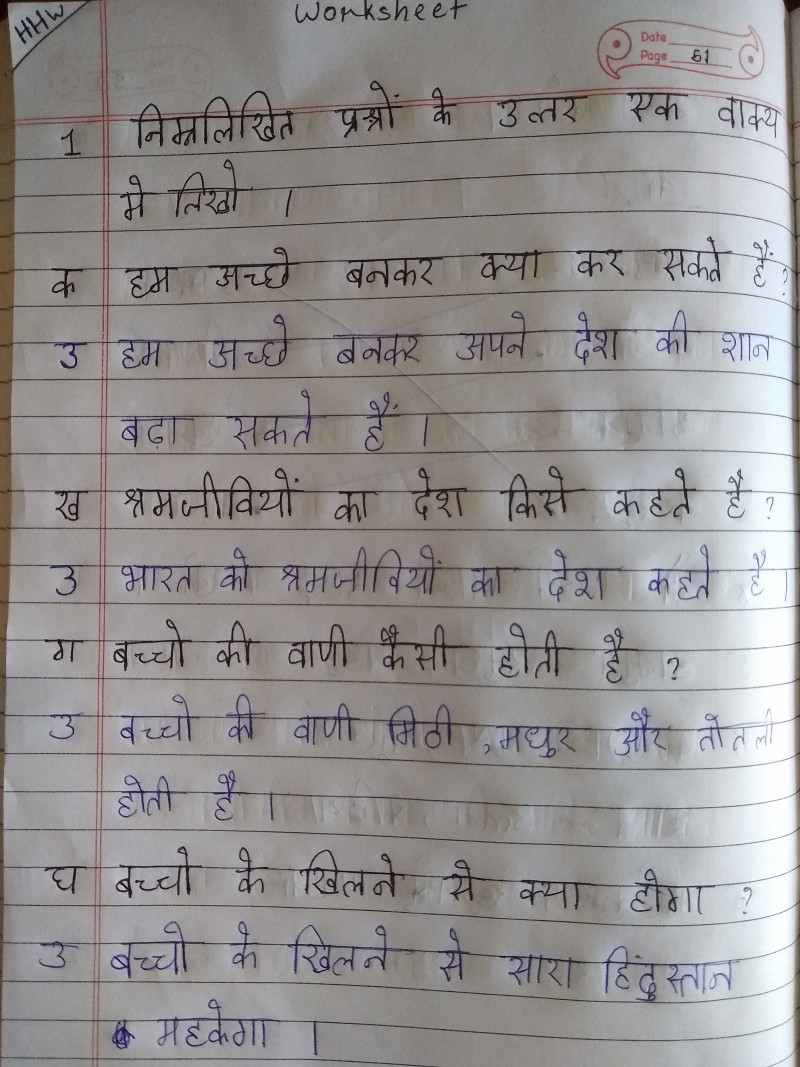 HHW
Worksheet
Date
Page 51
1 निम्नलिखित प्रश्नों के उत्तर एक वाक्य
मे लिखो ।
क हम अच्छे बनकर क्या कर सकते हैं?
उ हम अच्छे बनकर अपने देश की शान
बढ़ा सकते हैं ।
ख श्रमजीवियों का देश किसे कहते है ?
उ भारत को श्रमजीवियों का देश कहते है ।
ग बच्चो की वाणी कैसी होती है ?
उ बच्चो की वाणी मिठी , मधुर और तोतली
होती है ।
घ बच्चो के खिलने से क्या होगा ?
उ बच्चो के खिलने से सारा हिंदुस्तान
महकेगा ।